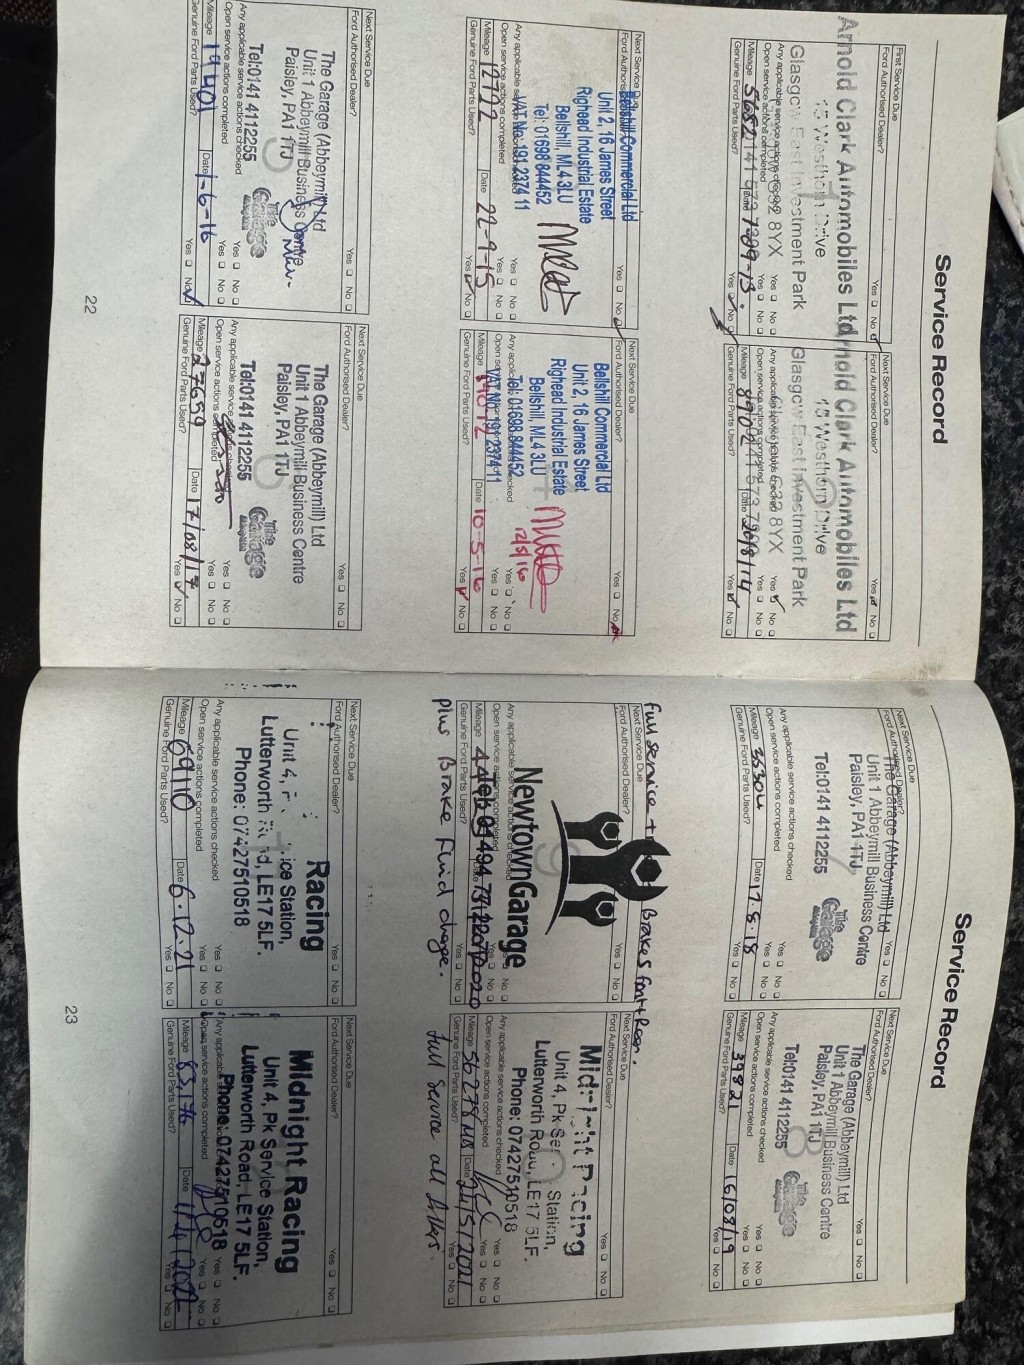 Service Record
First Service Due
Ford Authorised Dealer? Yes No
Arnold Clark Automobiles Ltd
15 Westhorn Drive
Glasgow East Investment Park
8YX
Any applicable service actions checked Yes No
Open service actions completed Yes No
Mileage 5682 Date
Genuine Ford Parts Used? Yes No
Next Service Due
Ford Authorised Dealer? Yes No
Arnold Clark Automobiles Ltd
15 Westhorn Drive
Glasgow East Investment Park
8YX
Any applicable service actions checked Yes No
Open service actions completed Yes No
Mileage Date 20/8/14
Genuine Ford Parts Used? Yes No
Next Service Due
Ford Authorised Dealer? Yes No
Bellshill Commercial Ltd
Unit 2, 16 James Street
Righead Industrial Estate
Bellshill, ML4 3LU
Tel: 01698 844452
VAT No: 191 2374 11
Any applicable service actions checked Yes No
Open service actions completed Yes No
Mileage 12722 Date 22-9-15
Genuine Ford Parts Used? Yes No
Next Service Due
Ford Authorised Dealer? Yes No
Bellshill Commercial Ltd
Unit 2, 16 James Street
Righead Industrial Estate
Bellshill, ML4 3LU
Tel: 01698 844452
VAT No: 191 2374 11
12/5/16
Any applicable service actions checked Yes No
Open service actions completed Yes No
Mileage Date 10-5-16
Genuine Ford Parts Used? Yes No
Next Service Due
Ford Authorised Dealer? Yes No
The Garage (Abbeymill) Ltd
Unit 1 Abbeymill Business Centre
Paisley, PA1 1TJ
Tel:0141 4112255
The Garage
Any applicable service actions checked Yes No
Open service actions completed Yes No
Mileage 19401 Date 1-6-16
Genuine Ford Parts Used? Yes No
Next Service Due
Ford Authorised Dealer? Yes No
The Garage (Abbeymill) Ltd
Unit 1 Abbeymill Business Centre
Paisley, PA1 1TJ
Tel:0141 4112255
The Garage
Any applicable service actions checked Yes No
Open service actions completed Yes No
Mileage 27659 Date 17/08/17
Genuine Ford Parts Used? Yes No
22
Service Record
Next Service Due
Ford Authorised Dealer?
The Garage (Abbeymill) Ltd
Unit 1 Abbeymill Business Centre
Paisley, PA1 1TJ
Tel:0141 4112255
The Garage
Any applicable service actions checked
Open service actions completed Yes No
Mileage 35304 Date 17.5.18
Genuine Ford Parts Used? Yes No
Next Service Due
Ford Authorised Dealer? Yes No
The Garage (Abbeymill) Ltd
Unit 1 Abbeymill Business Centre
Paisley, PA1 1TJ
Tel:0141 4112255
The Garage
Any applicable service actions checked Yes No
Open service actions completed Yes No
Mileage 39821 Date 16/08/19
Genuine Ford Parts Used? Yes No
full service + Brakes front + Rear.
Next Service Due
Ford Authorised Dealer? Yes No
NewtownGarage
Any applicable service actions checked Yes No
Open service actions completed Yes No
Mileage Date
Genuine Ford Parts Used? Yes No
plus Brake fluid change.
Next Service Due
Ford Authorised Dealer? Yes No
Midnight Racing
Unit 4, Pk Ser Station,
Lutterworth Road, LE17 5LF.
Phone: 07427510518
Any applicable service actions checked Yes No
Open service actions completed Yes No
Mileage 56278 Date
Genuine Ford Parts Used? Yes No
full service all filters.
Next Service Due
Ford Authorised Dealer? Yes No
Racing
Unit 4, ice Station,
Lutterworth d, LE17 5LF.
Phone: 07427510518
Any applicable service actions checked Yes No
Open service actions completed Yes No
Mileage 69110 Date 6.12.21
Genuine Ford Parts Used? Yes No
Next Service Due
Ford Authorised Dealer? Yes No
Midnight Racing
Unit 4, Pk Service Station,
Lutterworth Road, LE17 5LF.
Phone: 07427510518
Any applicable service actions checked Yes No
Open service actions completed Yes No
Mileage Date
Genuine Ford Parts Used? Yes No
23